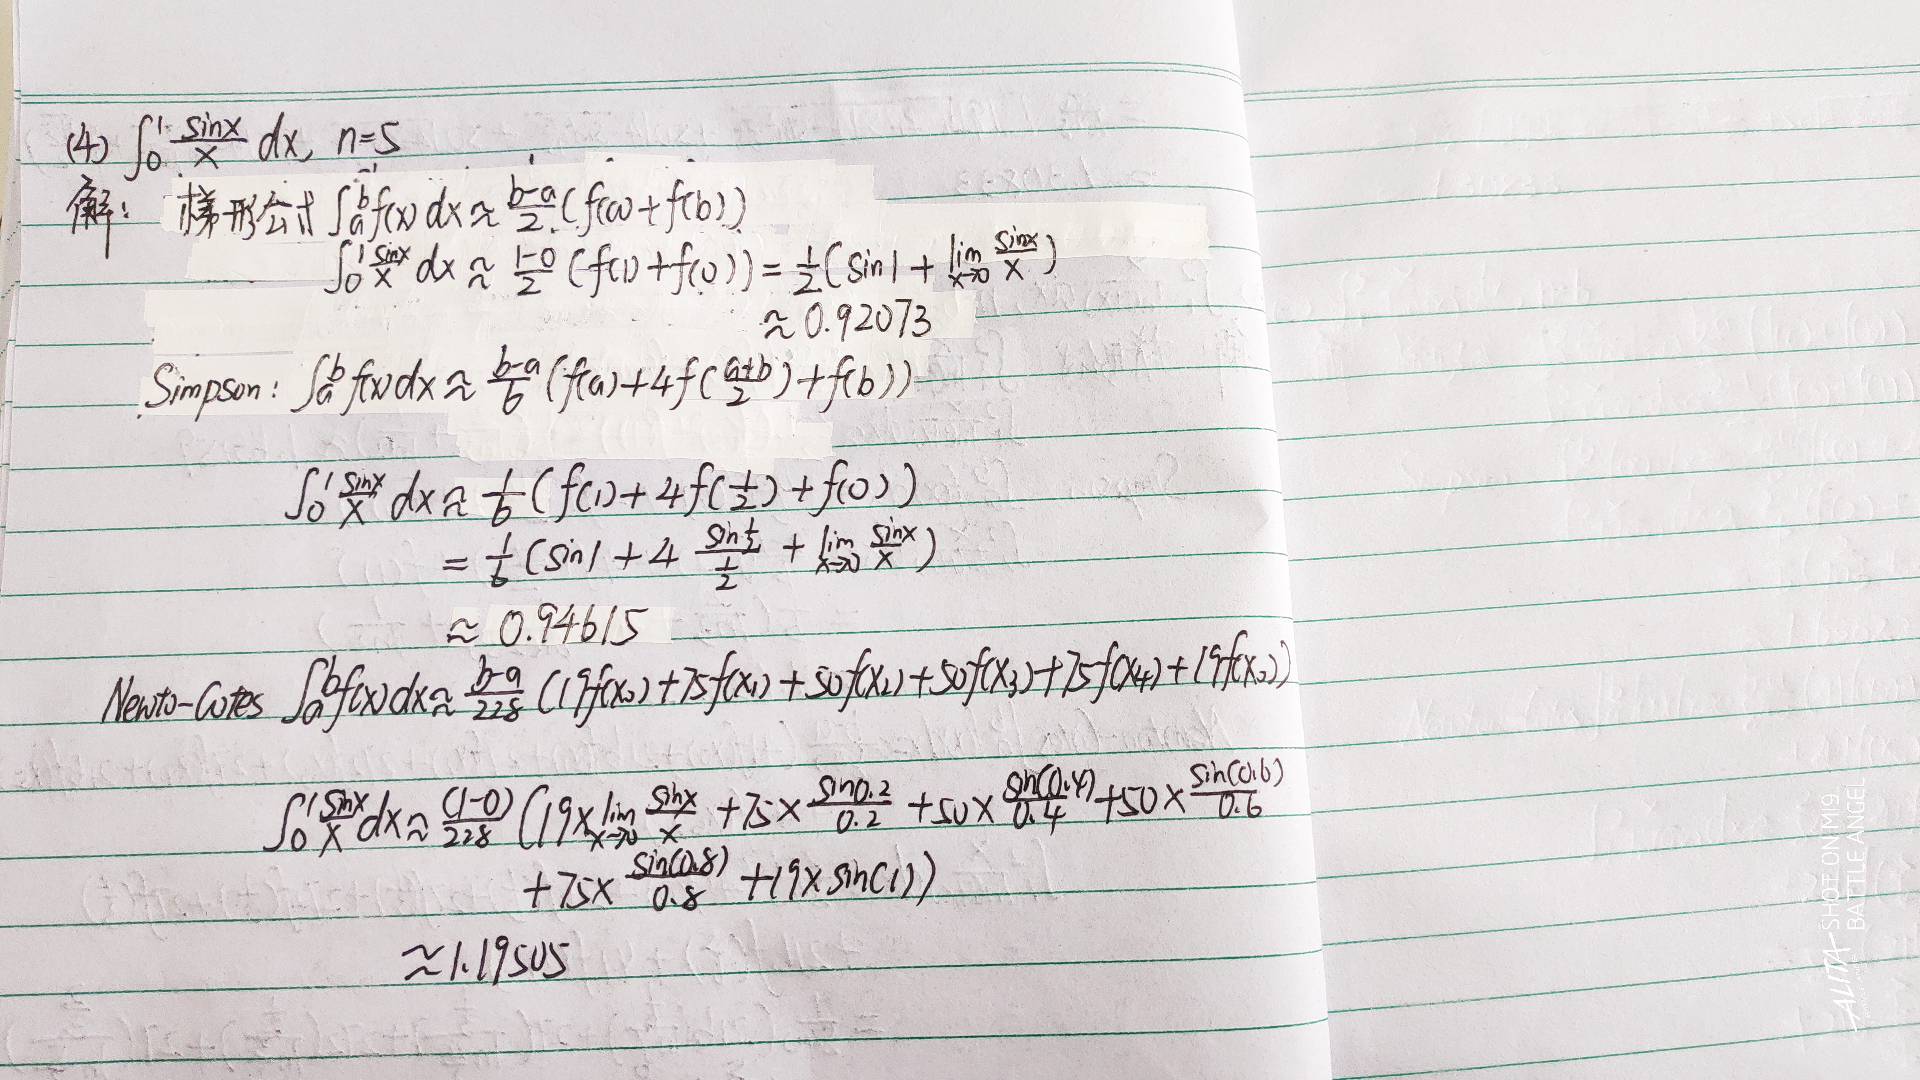 (4) ∫₀¹ sinx/x dx, n=5
解: 梯形公式 ∫ₐᵇ f(x)dx ≈ b-a/2 (f(a)+f(b))
∫₀¹ sinx/x dx ≈ 1-0/2 (f(1)+f(0)) = 1/2 (sin1 + lim x→0 sinx/x)
≈0.92073
Simpson: ∫ₐᵇ f(x)dx ≈ b-a/6 (f(a)+4f(a+b/2)+f(b))
∫₀¹ sinx/x dx ≈ 1/6 (f(1)+4f(1/2)+f(0))
= 1/6 (sin1 + 4 sin1/2 / 1/2 + lim x→0 sinx/x)
≈ 0.94615
Newto-Cotes ∫ₐᵇ f(x)dx ≈ b-a/228 (19f(x₀)+75f(x₁)+50f(x₂)+50f(x₃)+75f(x₄)+19f(x₅))
∫₀¹ sinx/x dx ≈ (1-0)/228 (19× lim x→0 sinx/x +75× sin0.2/0.2 +50× sin(0.4)/0.4 +50× sin(0.6)/0.6
+75× sin(0.8)/0.8 +19×sin(1))
≈1.19505
ALITA SHOT ON MI9
BATTLE ANGEL